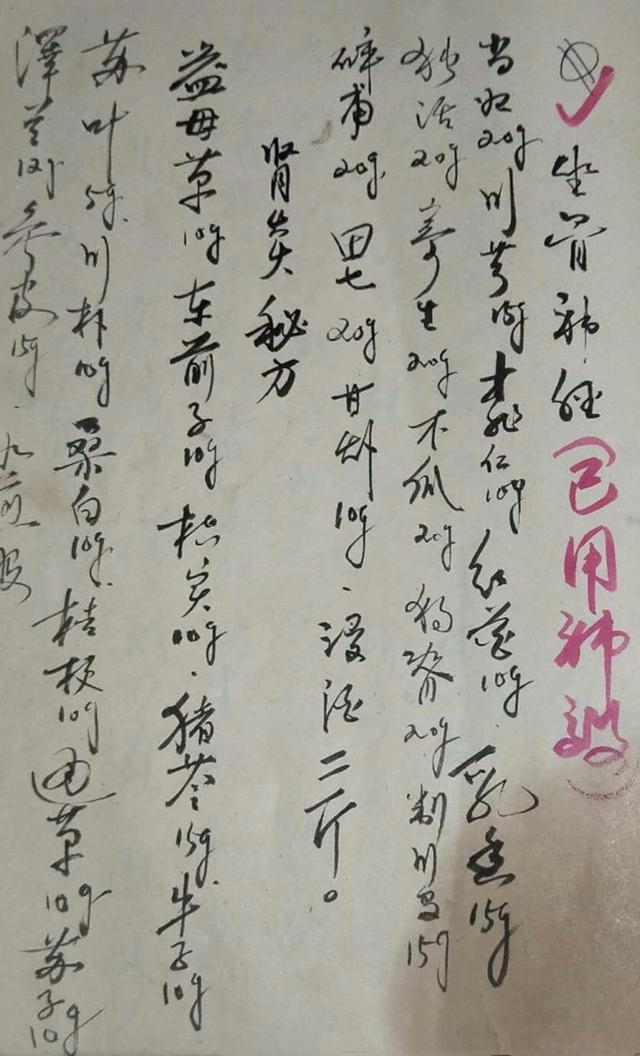 坐骨神经（已用神效）
当归20g 川芎15g 桃仁10g 红花10g 乳香15g
独活20g 寄生20g 木瓜20g 狗脊20g 制川乌15g
碎蛇20g 田七20g 甘草10g、浸酒二斤。
肾炎秘方
益母草10g 车前子10g 枳实10g、猪苓15g 牛子10g
苏叶5g 川朴10g 桑白10g 桔梗10g 通草10g 苏子10g
泽兰12g 苓皮15g、水煎服